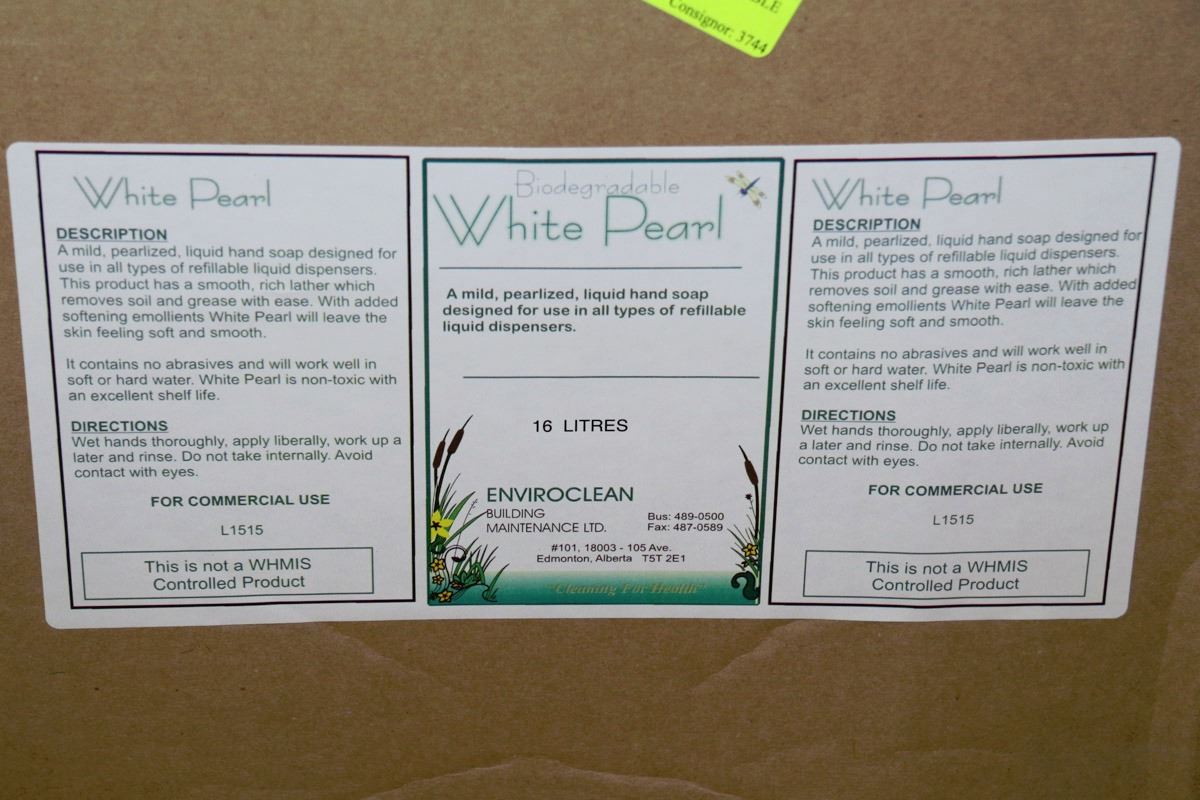 Consignor: 3744
White Pearl
DESCRIPTION
A mild, pearlized, liquid hand soap designed for
use in all types of refillable liquid dispensers.
This product has a smooth, rich lather which
removes soil and grease with ease. With added
softening emollients White Pearl will leave the
skin feeling soft and smooth.
It contains no abrasives and will work well in
soft or hard water. White Pearl is non-toxic with
an excellent shelf life.
DIRECTIONS
Wet hands thoroughly, apply liberally, work up a
later and rinse. Do not take internally. Avoid
contact with eyes.
FOR COMMERCIAL USE
L1515
This is not a WHMIS
Controlled Product
Biodegradable
White Pearl
A mild, pearlized, liquid hand soap
designed for use in all types of refillable
liquid dispensers.
16 LITRES
ENVIROCLEAN
BUILDING
MAINTENANCE LTD.
Bus: 489-0500
Fax: 487-0589
#101, 18003 - 105 Ave.
Edmonton, Alberta T5T 2E1
"Cleaning For Health"
White Pearl
DESCRIPTION
A mild, pearlized, liquid hand soap designed for
use in all types of refillable liquid dispensers.
This product has a smooth, rich lather which
removes soil and grease with ease. With added
softening emollients White Pearl will leave the
skin feeling soft and smooth.
It contains no abrasives and will work well in
soft or hard water. White Pearl is non-toxic with
an excellent shelf life.
DIRECTIONS
Wet hands thoroughly, apply liberally, work up
a later and rinse. Do not take internally. Avoid
contact with eyes.
FOR COMMERCIAL USE
L1515
This is not a WHMIS
Controlled Product